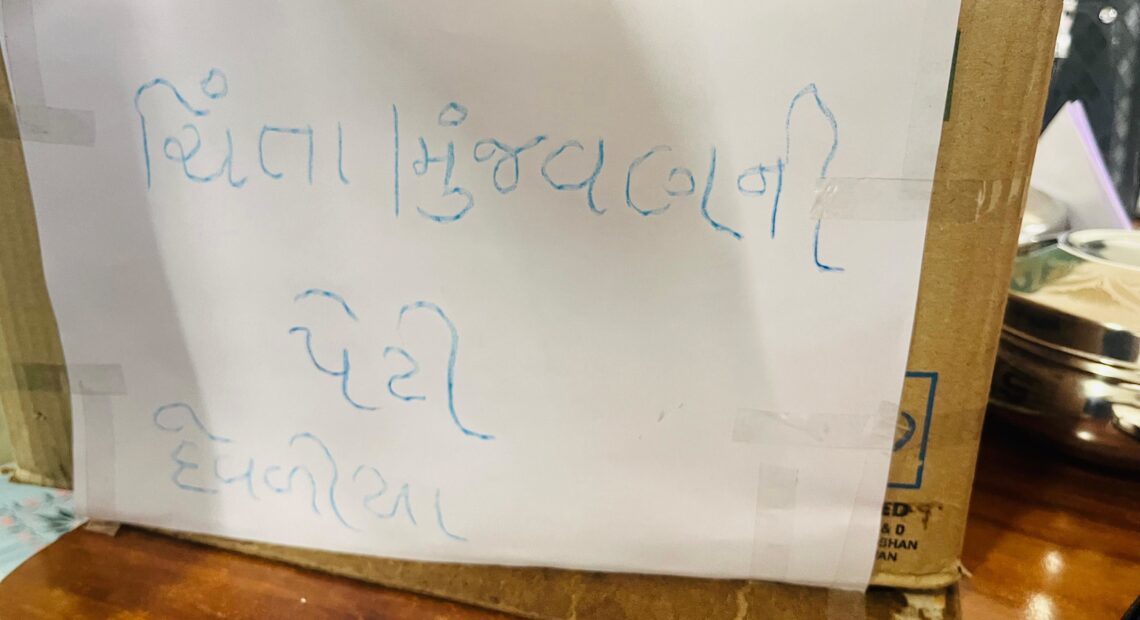 ચિંતા/મુંજવણની
પેટી
દેવળીયા
ED
& D
BHAN
AN